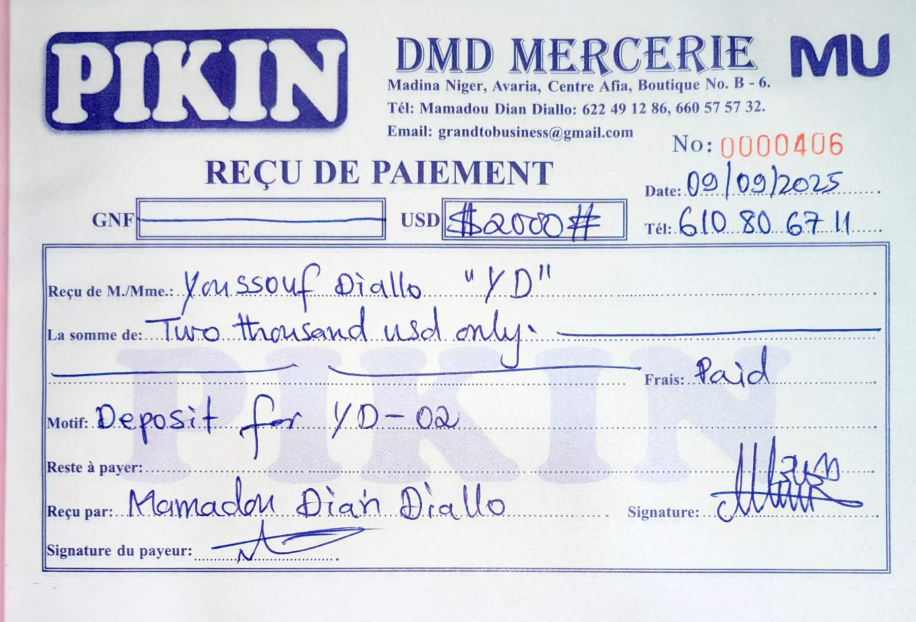 PIKIN
DMD MERCERIE MU
Madina Niger, Avaria, Centre Afia, Boutique No. B - 6.
Tél: Mamadou Dian Diallo: 622 49 12 86, 660 57 57 32.
Email: grandtobusiness@gmail.com
No: 0000406
REÇU DE PAIEMENT
Date: 09/09/2025
GNF USD $2000#
Tél: 610 80 67 11
Reçu de M./Mme.: Youssouf Diallo "YD"
La somme de: Two thousand usd only.
Frais: Paid
Motif: Deposit for YD-02
Reste à payer:
Reçu par: Mamadou Dian Diallo Signature:
Signature du payeur:
PIKIN